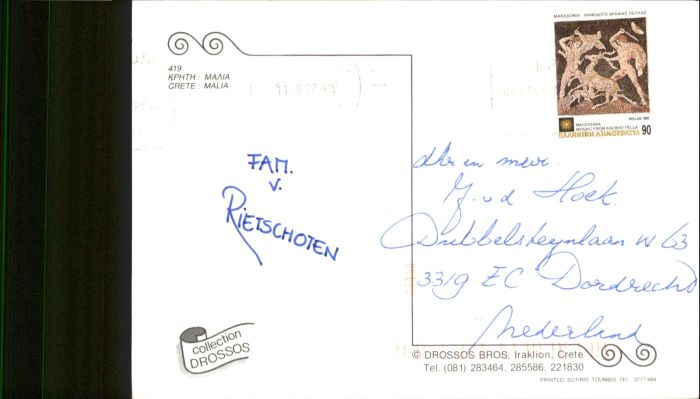 ΜΑΚΕΔΟΝΙΑ - ΨΗΦΙΔΩΤΟ ΑΡΧΑΙΑΣ ΠΕΛΛΑΣ
HELLAS 1992
MACEDONIA
MOSAIC FROM ANCIENT PELLA
ΕΛΛΗΝΙΚΗ ΔΗΜΟΚΡΑΤΙΑ 90
419
ΚΡΗΤΗ : ΜΑΛΙΑ
CRETE : MALIA
FAM.
v.
RIETSCHOTEN
dhr en mevr.
v d Hoek.
Dubbelsteynlaan W 63
3319 EC Dordrecht
Nederland
collection
DROSSOS
© DROSSOS BROS, Iraklion, Crete
Tel. (081) 283464, 285586, 221830
PRINTED SOTIRIS TOUMBIS TEL. 3217.484